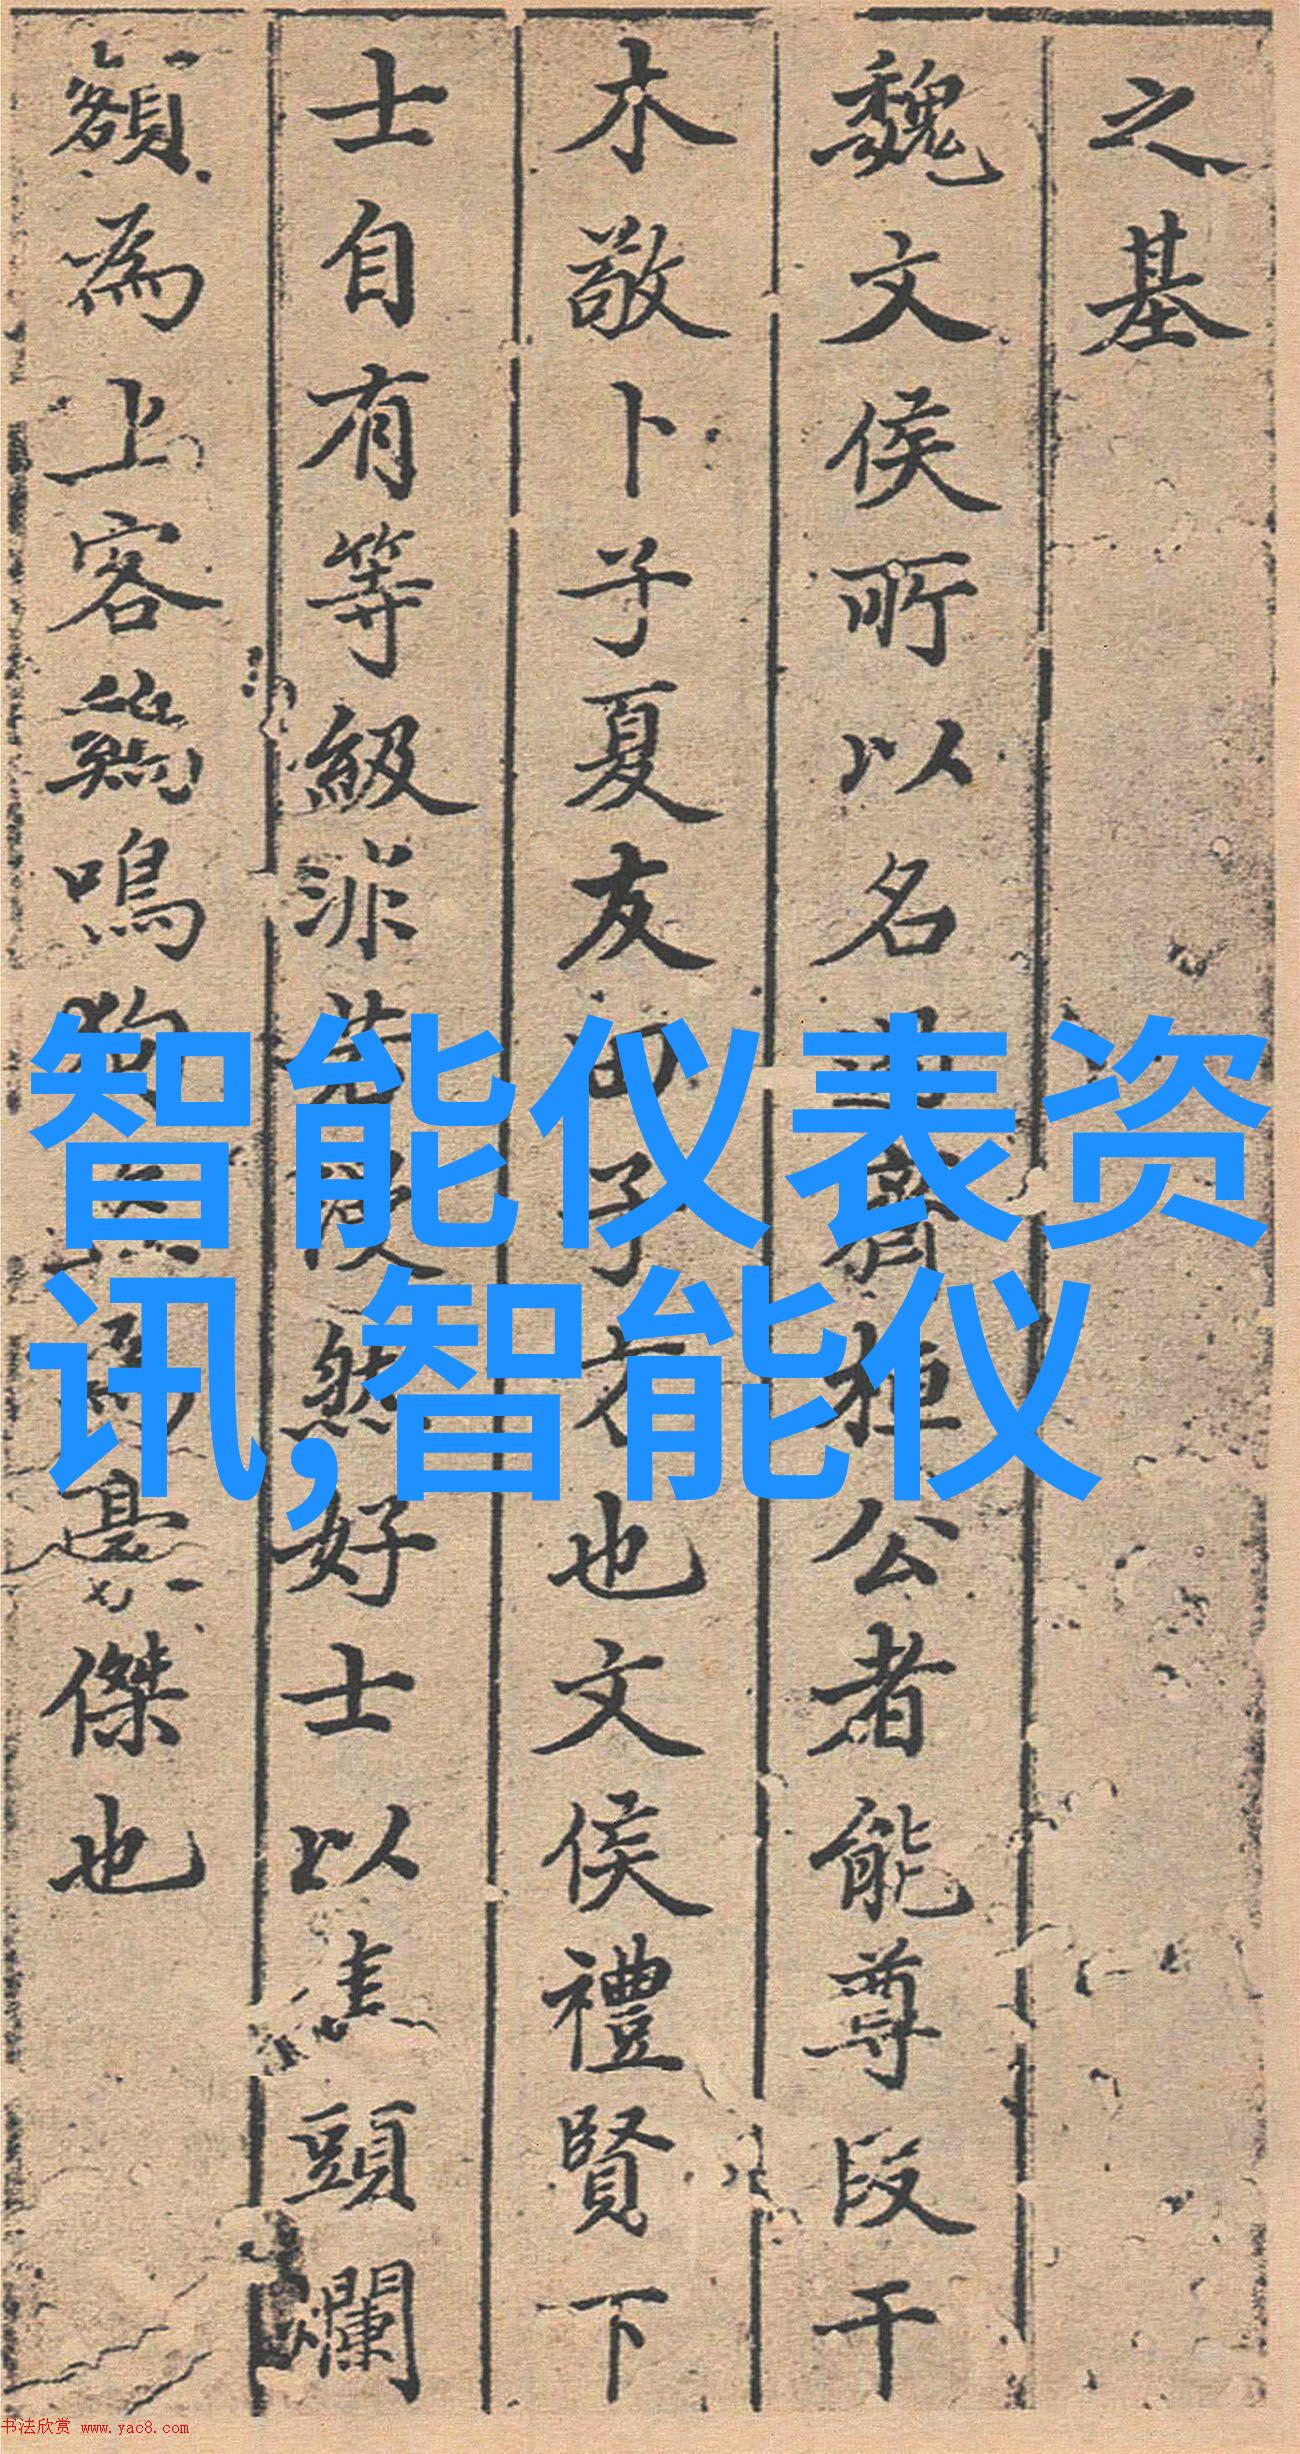 之基
魏文侯所以名過齊桓公者能尊段干
木敬卜子夏友田子方也文侯禮賢下
士自有等級非若然好士以焦頭爛
額為上客鷄鳴狗為豪傑也
智能仪表资
讯,智能仪
书法欣赏 www.yac8.com